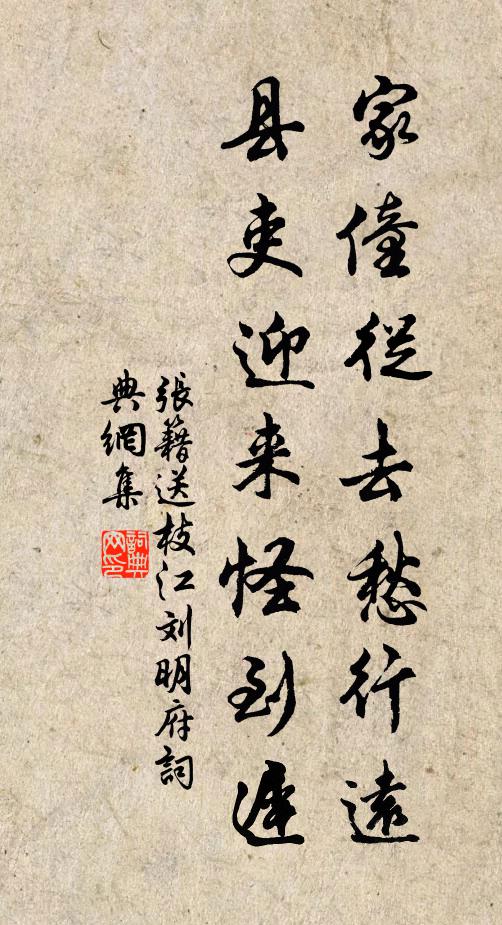 家僮從去愁行遠
县吏迎来怪到遲
張籍送枝江刘明府詞
典網集
詞典网印